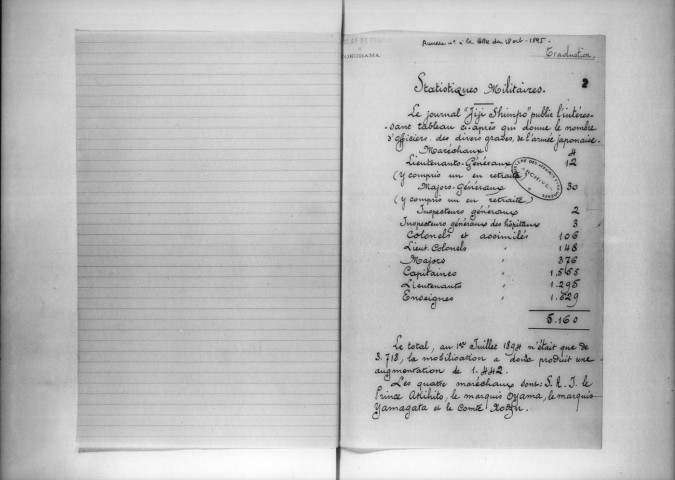 Annexe n° à la lettre du 18 oct. 1895.
YOKOHAMA
Traduction.
2
Statistiques Militaires.
Le journal "Jiji Shimpo" publie l'intéres-
-sant tableau ci-après qui donne le nombre
d'officiers, des divers grades, de l'armée japonaise.
Maréchaux 4
Lieutenants-Généraux 12
(y compris un en retraite)
Majors-Généraux 30
(y compris un en retraite)
Inspecteurs généraux 2
Inspecteurs généraux des hôpitaux 3
Colonels et assimilés 106
Lieut. Colonels " 148
Majors " 376
Capitaines " 1.565
Lieutenants " 1.295
Enseignes " 1.629
5.160
Le total, au 1er Juillet 1894 n'était que de
3.718, la mobilisation a donc produit une
augmentation de 1.442.
Les quatre maréchaux sont: S. A. I. le
Prince Akihito, le marquis Oyama, le marquis
Yamagata et le Comte Nodzu.
ARCHIVES